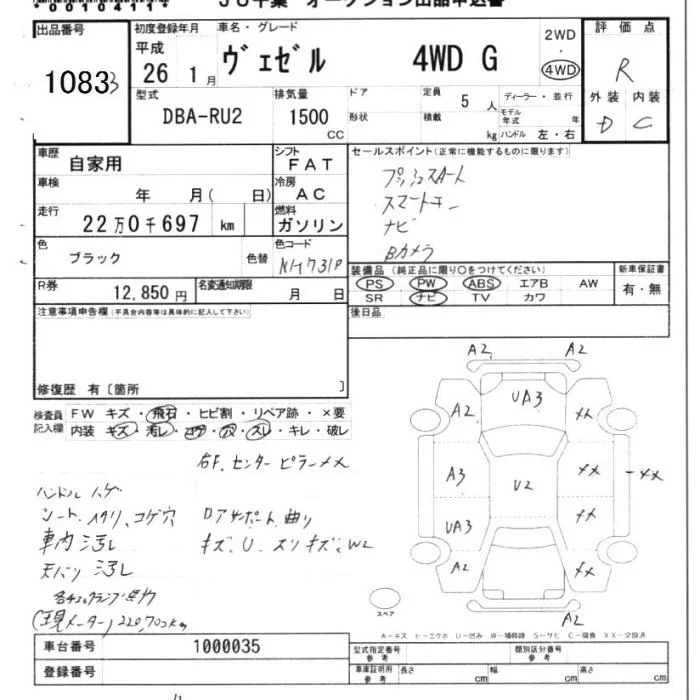 JU千葉 オークション出品申込書
出品番号
10833
初度登録年月
平成
26 1月
車名・グレード
ヴェゼル 4WD G
2WD
・
4WD
評価点
R
外装 内装
D C
型式
DBA-RU2
排気量
1500
CC
ドア
形状
定員
5 人
積載
kg
ディーラー・並行
モデル年式 年
ハンドル 左・右
車歴
自家用
シフト
FAT
車検
年 月( 日)
冷房
AC
走行
22万0千697 km
燃料
ガソリン
色
ブラック
色替
色コード
NH731P
R券
12,850円
名変通知期限
月 日
セールスポイント(正常に機能するものに限ります)
プッシュスタート
スマートキー
ナビ
Bカメラ
装備品(純正品に限り〇をつけてください)
PS PW ABS エアB AW
SR ナビ TV カワ
新車保証書
有・無
後日品
注意事項申告欄(不具合内容等は具体的に記入して下さい)
修復歴 有〔箇所 〕
検査員記入欄
FW キズ・飛石・ヒビ割・リペア跡・×要
内装 キズ・汚レ・コゲ・穴・スレ・キレ・破レ
右F.センターピラーメメ
ハンドル ハゲ
シート.ヘタリ、コゲ穴
車内汚レ
天バリ汚レ
ロアサポート曲り
キズ、U、スリキズ、W2
(現メーター)220,702km
A2 A2
UA3
A2 ××
A3 U2 ×× ××
UA3 ××
A2 ××
A2
スペア
A－キズ E－エクボ U－凹み W－補修跡 S－サビ C－腐食 XX－交換済
車台番号
1000035
登録番号
型式指定番号
参考
類別区分番号
参考
車庫証明用
参考
長さ cm
幅 cm
高さ cm